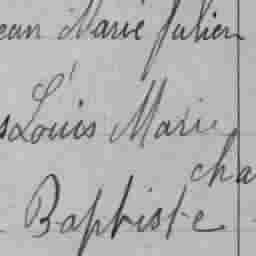 ean Marie Julien
s Louis Marie
cha
Baptiste